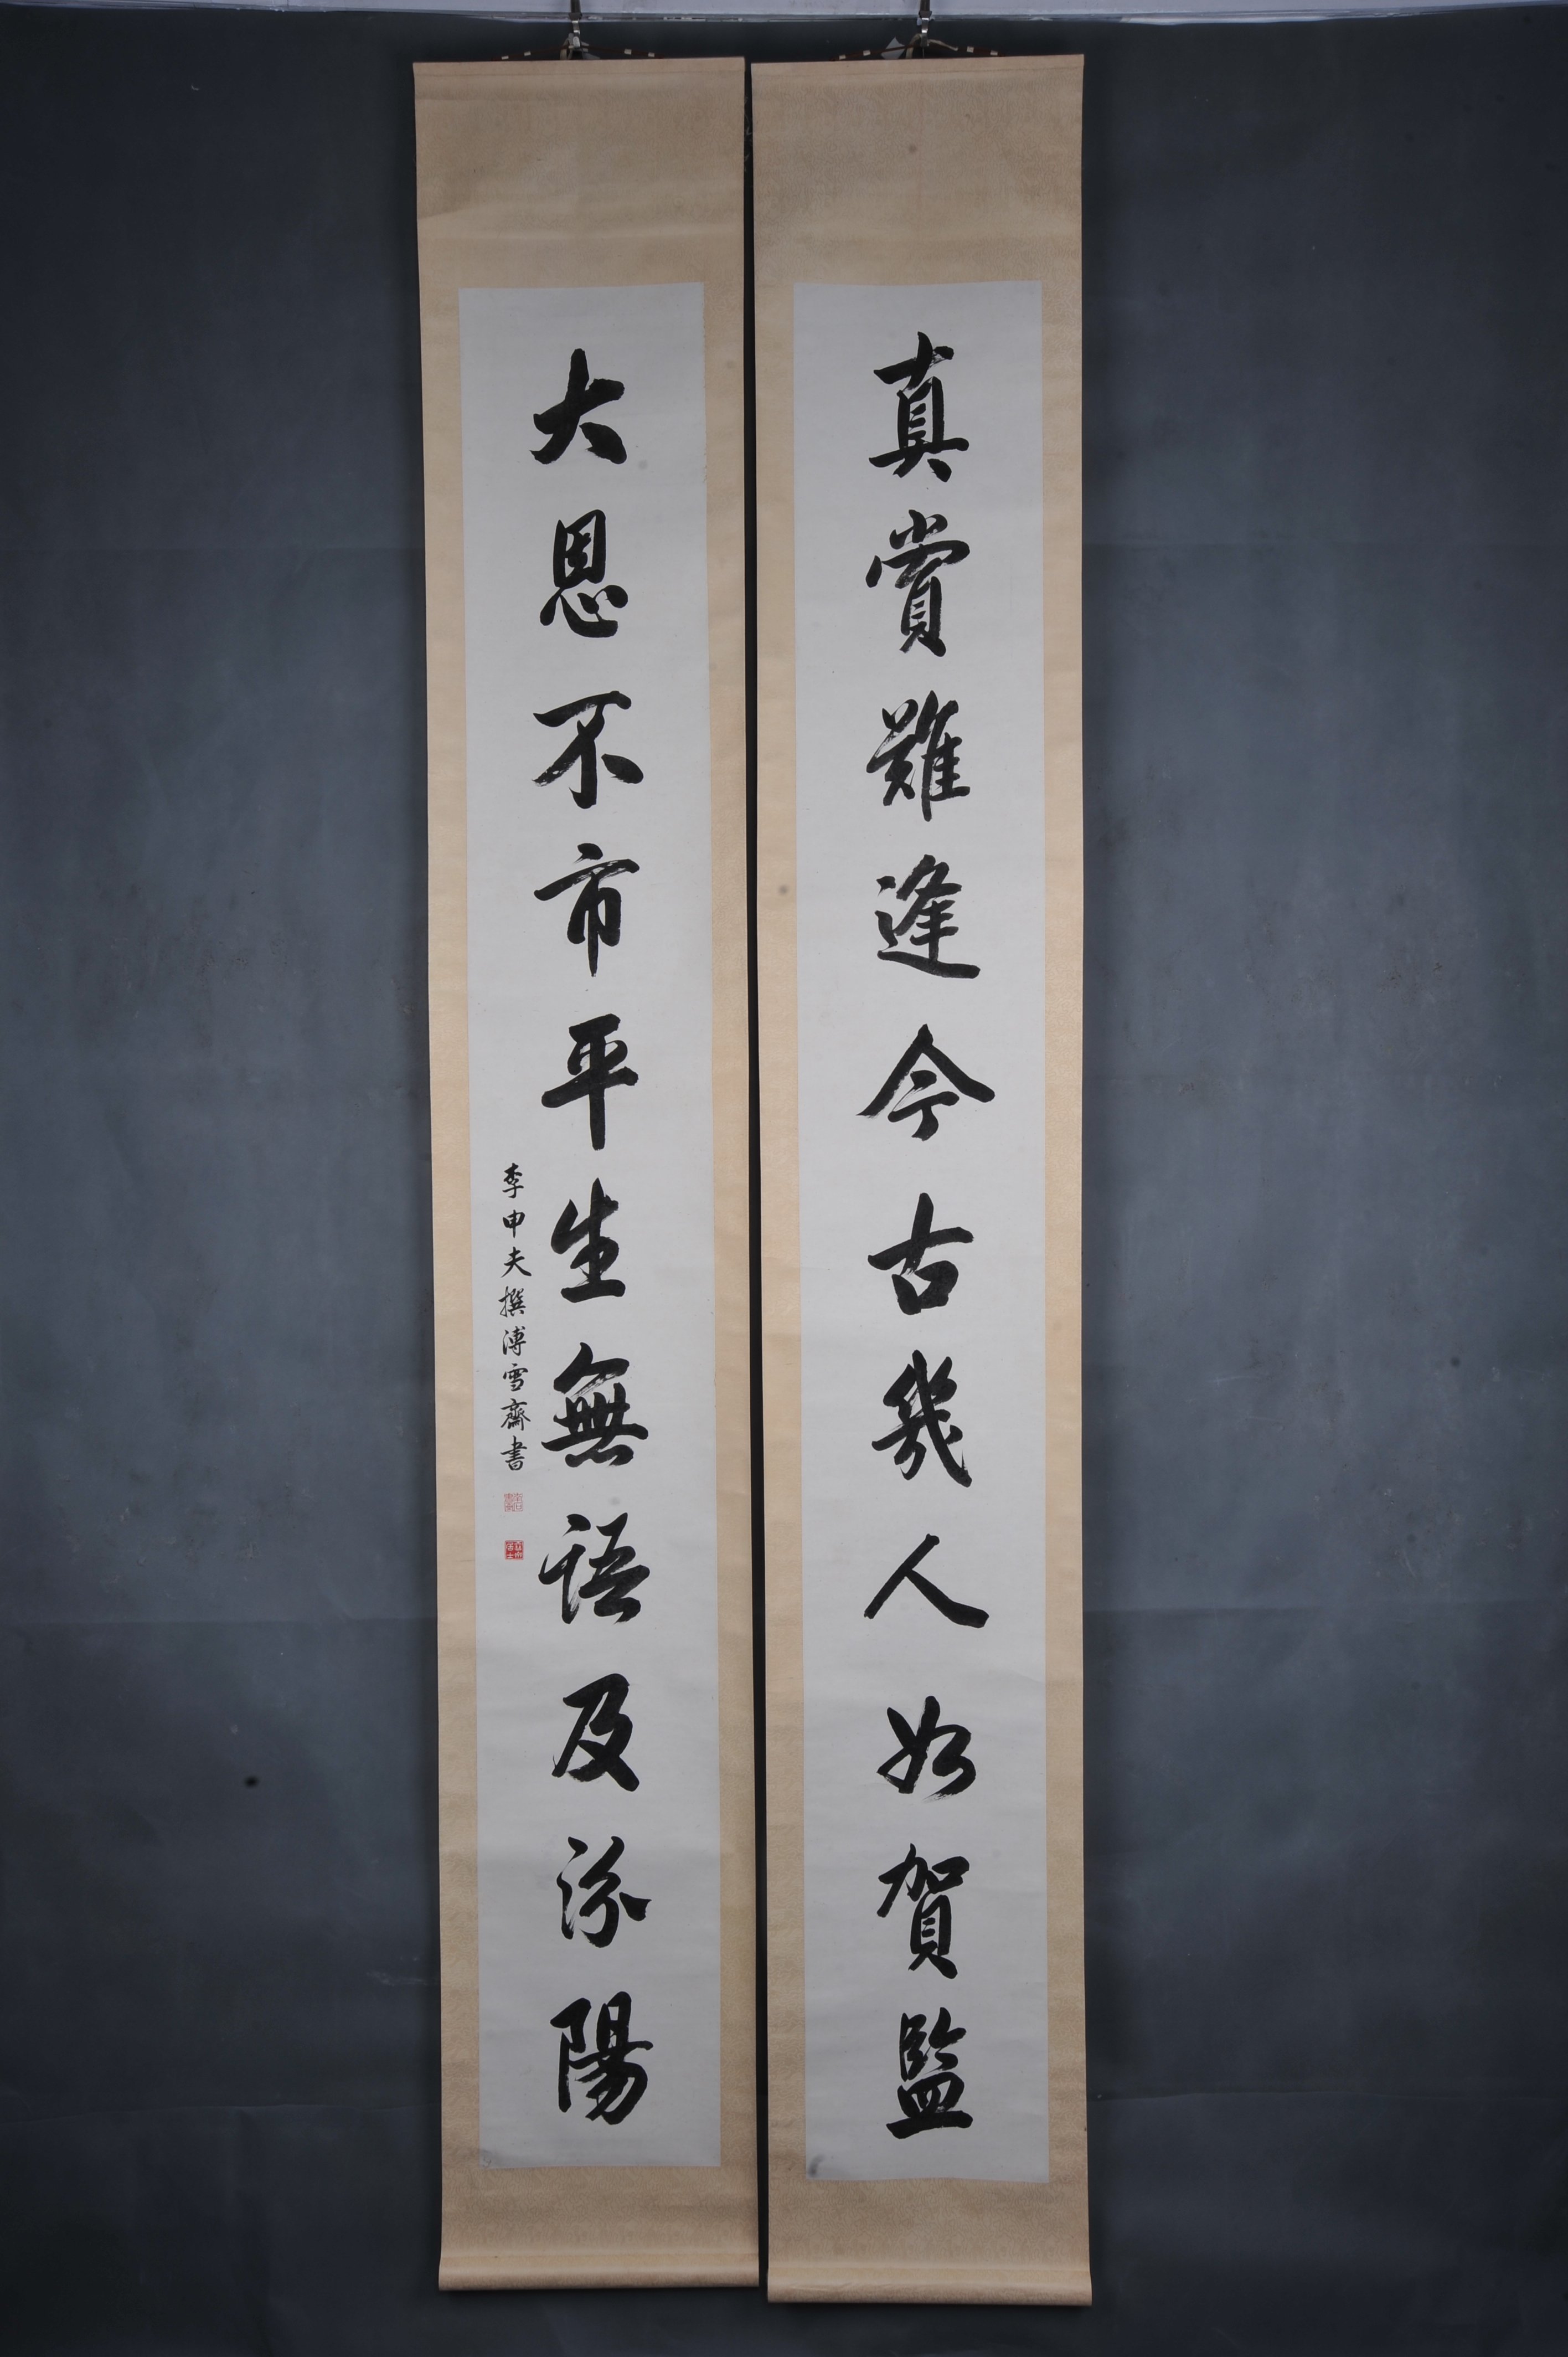 真賞難逢今古幾人如賀監
大恩不市平生無語及汾陽
李申夫撰溥雪齋書